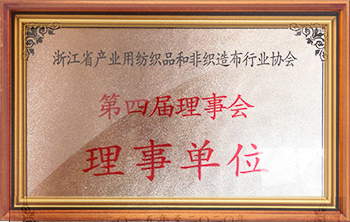 浙江省产业用纺织品和非织造布行业协会
第四届理事会
理事单位